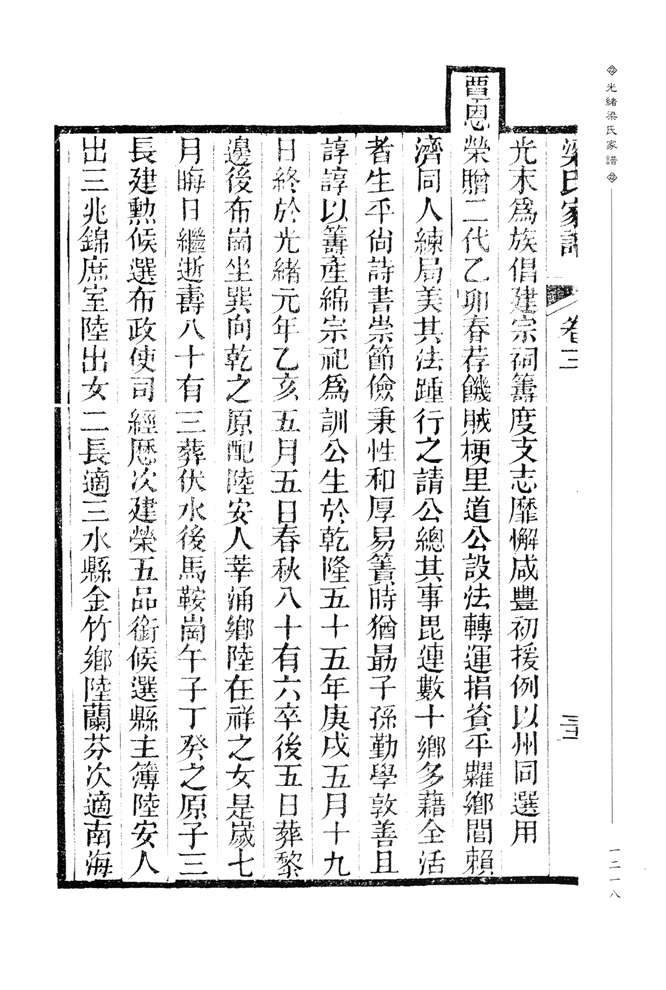 光緒梁氏家譜
一二一八
梁氏家譜 卷三 三五
光末為族倡建宗祠籌度支志靡懈咸豐初援例以州同選用
覃恩榮贈二代乙卯春荐饑賊梗里道公設法轉運捐資平糶鄉閭賴
濟同人練局美其法踵行之請公總其事毘連數十鄉多藉全活
者生平尚詩書崇節儉秉性和厚易簀時猶勗子孫勤學敦善且
諄諄以籌產綿宗祀為訓公生於乾隆五十五年庚戌五月十九
日終於光緒元年乙亥五月五日春秋八十有六卒後五日葬黎
邊後布崗坐巽向乾之原配陸安人莘涌鄉陸在祥之女是歲七
月晦日繼逝壽八十有三葬伏水後馬鞍崗午子丁癸之原子三
長建勳候選布政使司經厯次建榮五品銜候選縣主簿陸安人
出三兆錦庶室陸出女二長適三水縣金竹鄉陸蘭芬次適南海